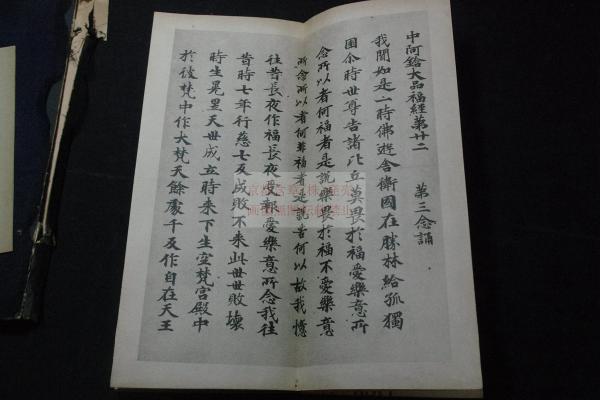 中阿鋡大品福經第廿二　第三念誦
我聞如是一時佛遊舍衛國在勝林給孤獨
園尒時世尊告諸比丘莫畏於福愛樂意所
念所以者何福者是說樂畏於福不愛樂意
所念所以者何非福者是說苦何以故我憶
往昔長夜作福長夜受報愛樂意所念我往
昔時七年行慈七反成敗不來此世世敗壞
時生晃昱天世成立時来下生空梵宮殿中
於彼梵中作大梵天餘處千反作自在天王